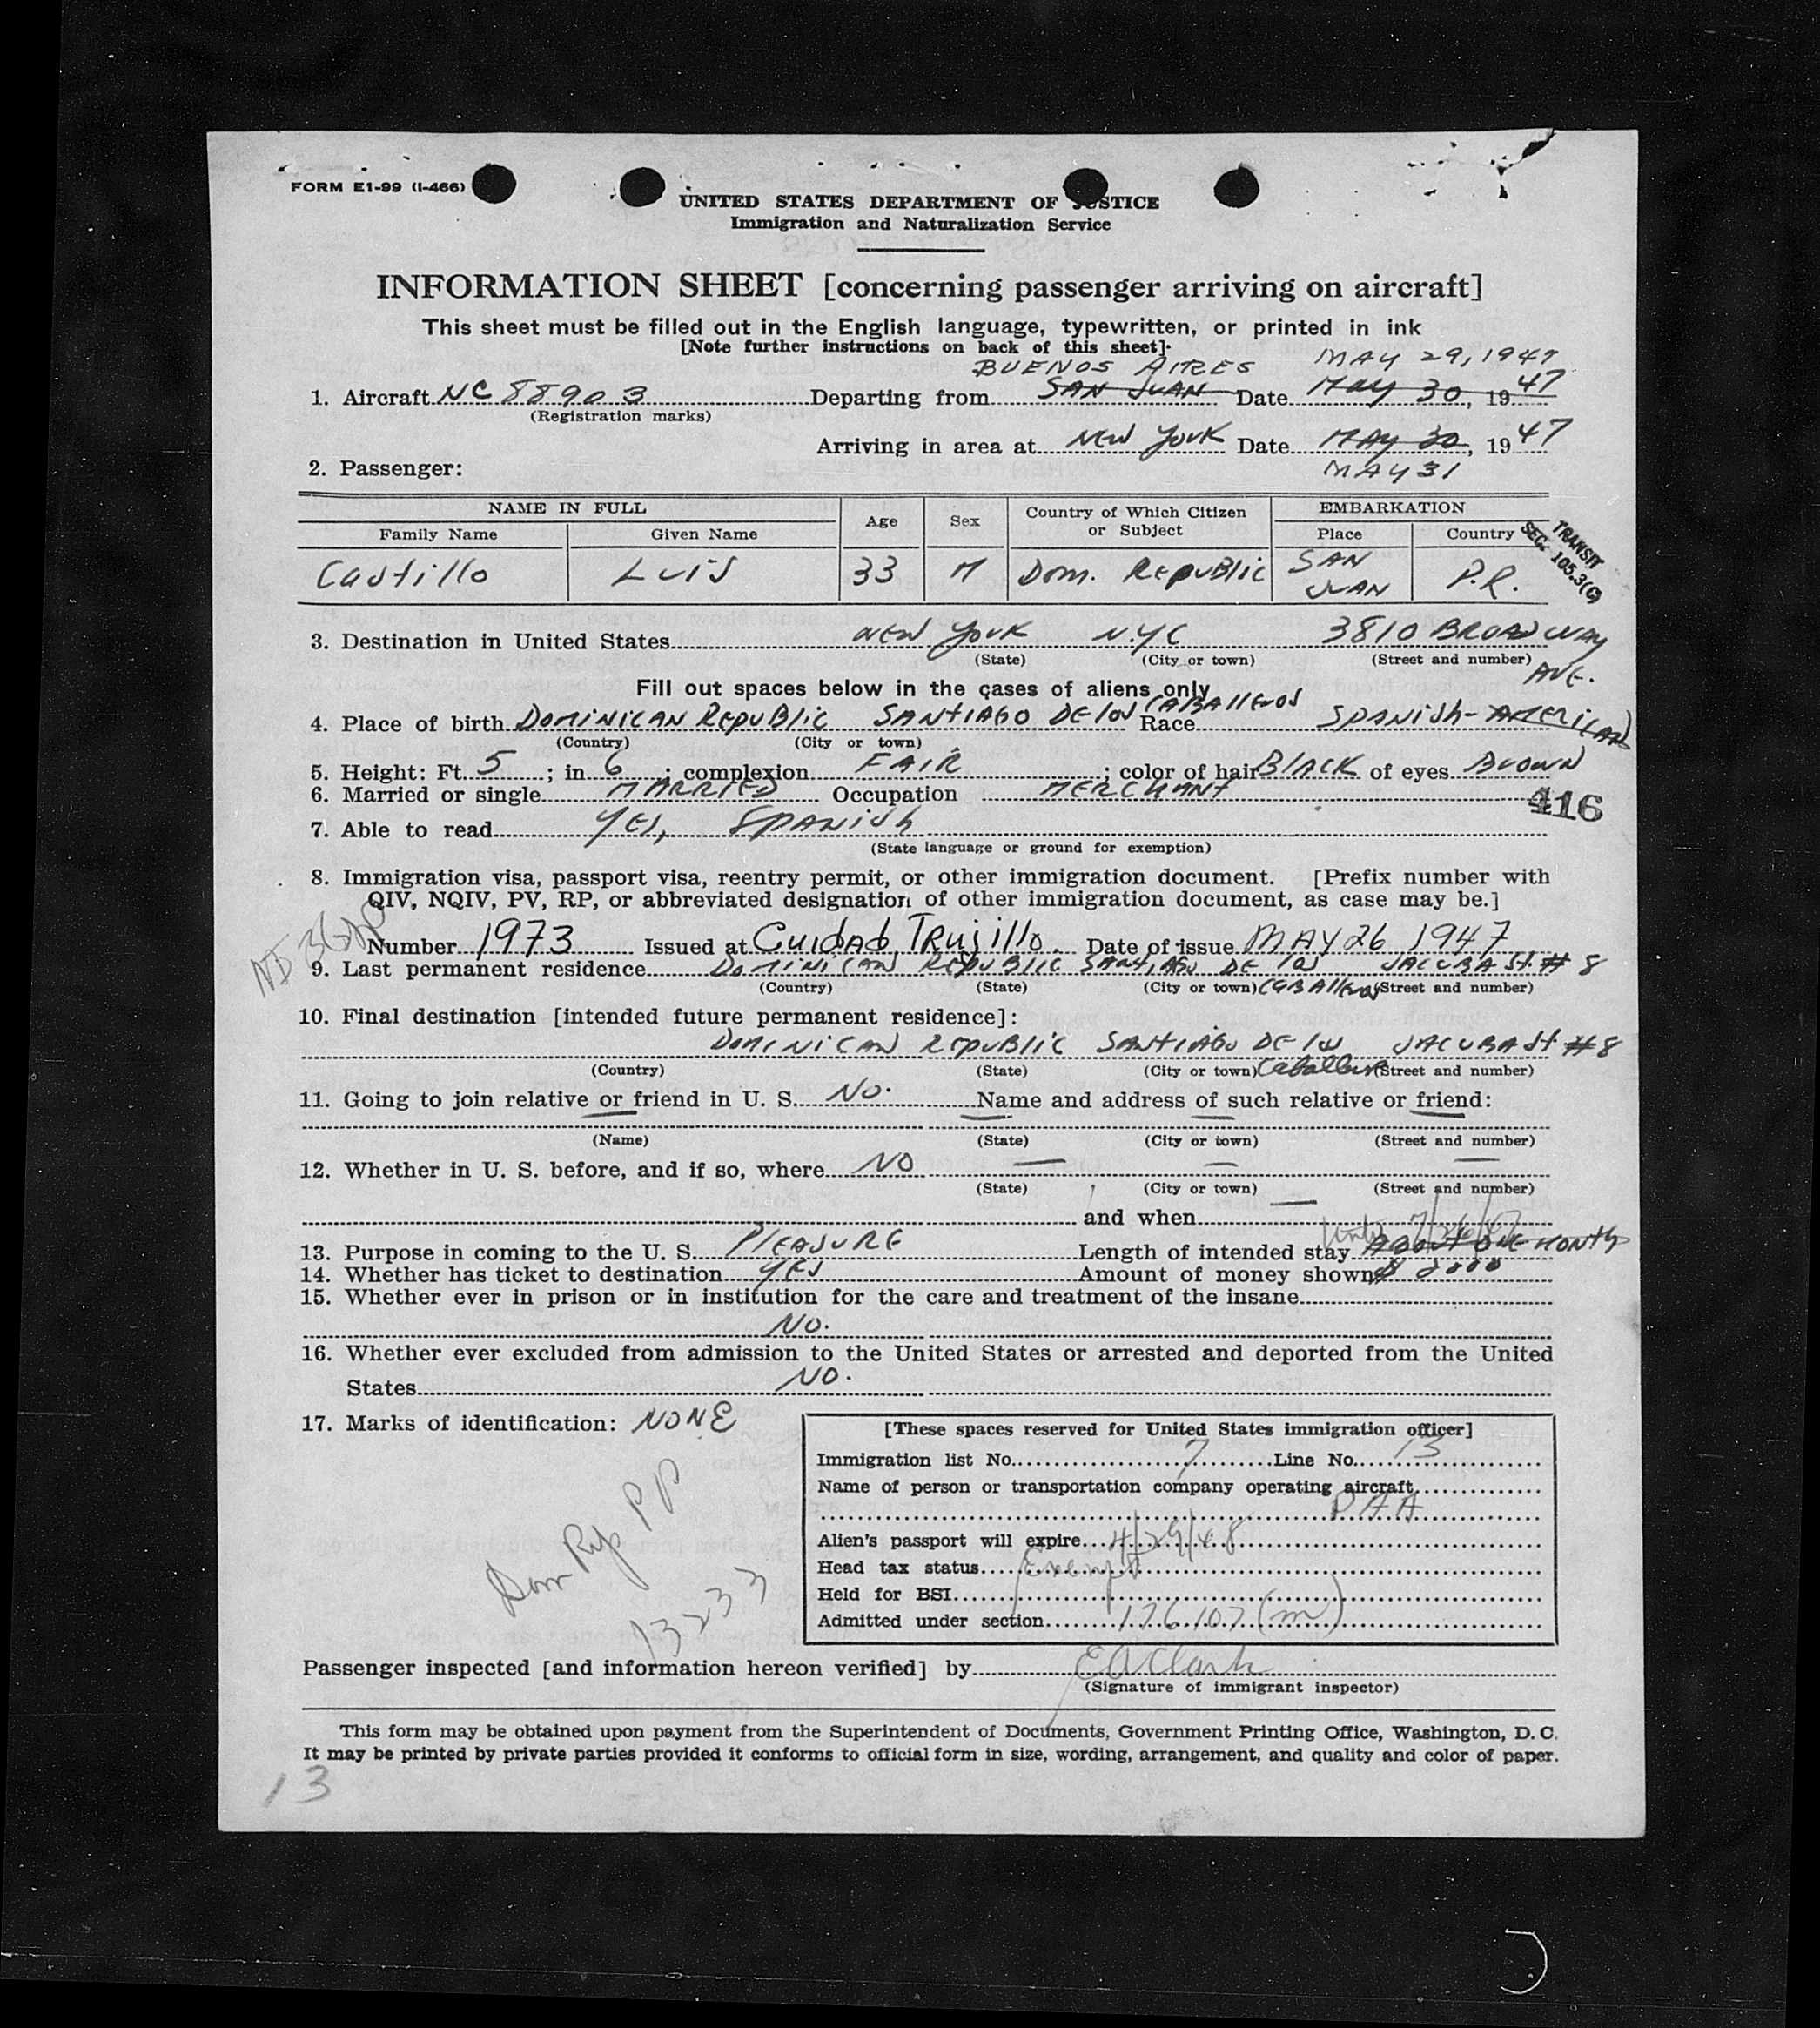 FORM E1-99 (I-466)
UNITED STATES DEPARTMENT OF JUSTICE
Immigration and Naturalization Service
INFORMATION SHEET [concerning passenger arriving on aircraft]
This sheet must be filled out in the English language, typewritten, or printed in ink
[Note further instructions on back of this sheet].
BUENOS AIRES MAY 29, 1947
1. Aircraft NC 88903 Departing from SAN JUAN Date May 30, 1947
(Registration marks)
Arriving in area at NEW YORK Date MAY 30, 1947
2. Passenger: MAY 31
NAME IN FULL Age Sex Country of Which Citizen or Subject EMBARKATION
Family Name Given Name Place Country
TRANSIT
SEC. 105.3(C)
Castillo LUIS 33 M DOM. REPUBLIC SAN JUAN P.R.
3. Destination in United States NEW YORK N.Y.C 3810 BROADWAY AVE.
(State) (City or town) (Street and number)
Fill out spaces below in the cases of aliens only
4. Place of birth DOMINICAN REPUBLIC SANTIAGO DE los CABAllEROS Race SPANISH-AMERICAN
(Country) (City or town)
5. Height: Ft. 5; in 6; complexion FAIR; color of hair BLACK of eyes BROWN
6. Married or single MARRIED Occupation MERCHANT
416
7. Able to read YES, SPANISH
(State language or ground for exemption)
8. Immigration visa, passport visa, reentry permit, or other immigration document. [Prefix number with
QIV, NQIV, PV, RP, or abbreviated designation of other immigration document, as case may be.]
Number 1973 Issued at Cuidad Trujillo. Date of issue MAY 26 1947
9. Last permanent residence DOMINICAN REPUBLIC SANTIAGO DE los CABAlleros JACUBA St. # 8
(Country) (State) (City or town) (Street and number)
10. Final destination [intended future permanent residence]:
DOMINICAN REPUBLIC SANTIAGO DE los Caballeros JACUBA St. #8
(Country) (State) (City or town) (Street and number)
11. Going to join relative or friend in U. S. No. Name and address of such relative or friend:
(Name) (State) (City or town) (Street and number)
12. Whether in U. S. before, and if so, where NO
(State) (City or town) (Street and number)
and when
13. Purpose in coming to the U. S. PLEASURE Length of intended stay ABOUT ONE MONTH
14. Whether has ticket to destination YES Amount of money shown $ 2000
15. Whether ever in prison or in institution for the care and treatment of the insane
No.
16. Whether ever excluded from admission to the United States or arrested and deported from the United
States NO.
17. Marks of identification: NONE
[These spaces reserved for United States immigration officer]
Immigration list No. 7 Line No. 13
Name of person or transportation company operating aircraft
PAA
Alien's passport will expire 4/29/48
Head tax status Exempt
Held for BSI
Admitted under section 176.107 (m)
Dom Rep PP
13233
Passenger inspected [and information hereon verified] by EA Clark
(Signature of immigrant inspector)
This form may be obtained upon payment from the Superintendent of Documents, Government Printing Office, Washington, D. C.
It may be printed by private parties provided it conforms to official form in size, wording, arrangement, and quality and color of paper.
13